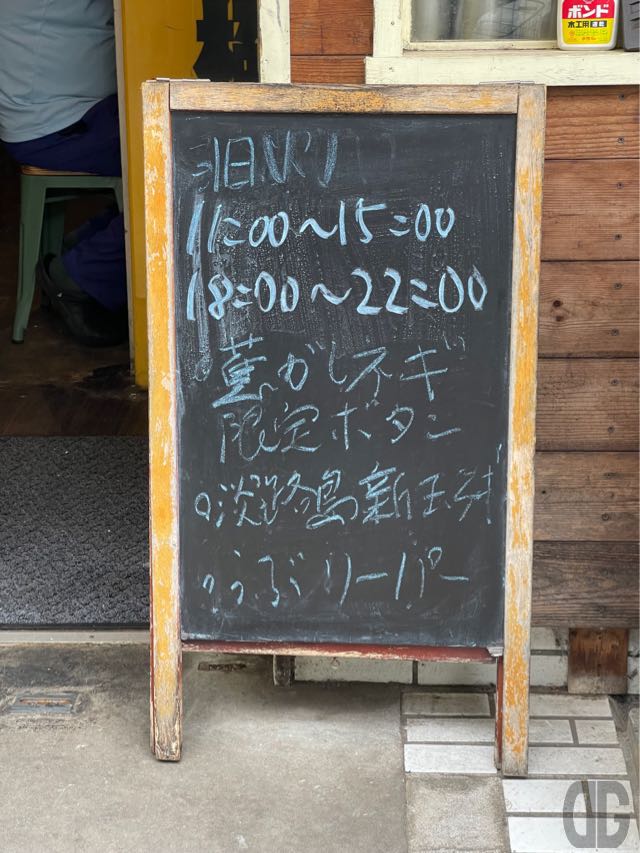 ボンド
木工用 速乾
11:00〜15:00
18:00〜22:00
焦がしネギ
限定ボタン
○淡路島新玉ネギ
リーパー
DG